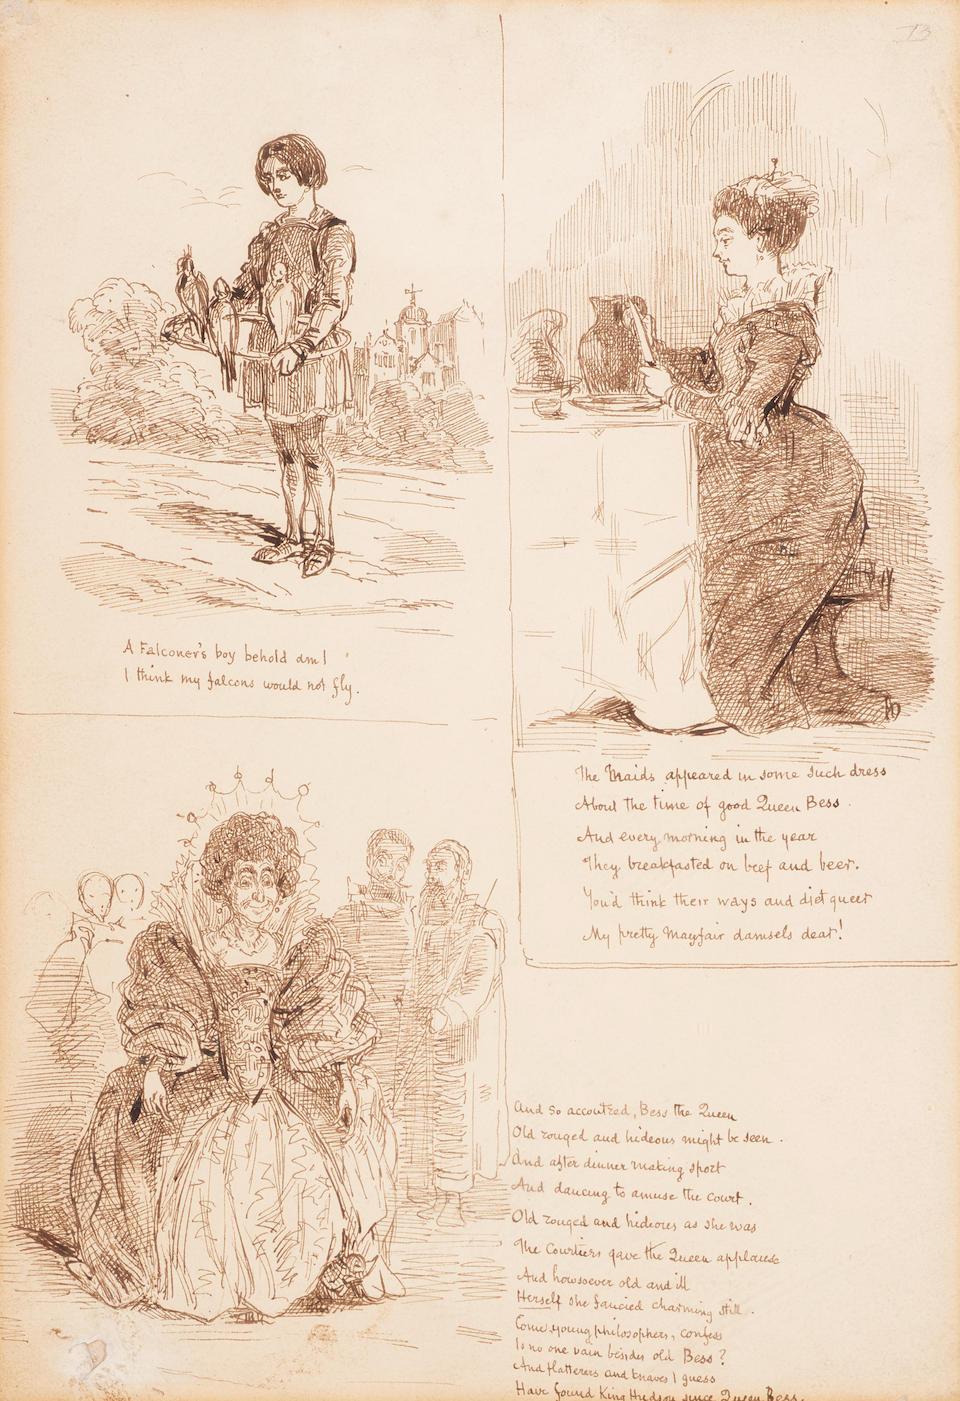 13
A Falconer's boy behold am I
I think my falcons would not fly.
The Maids appeared in some such dress
About the time of good Queen Bess.
And every morning in the year
They breakfasted on beef and beer.
You'd think their ways and diet queer
My pretty Mayfair damsels dear!
And so accoutred, Bess the Queen
Old rouged and hideous might be seen.
And after dinner making sport
And dancing to amuse the Court.
Old rouged and hideous as she was
The Courtiers gave the Queen applause
And howsoever old and ill
Herself she fancied charming still.
Come, young philosophers, confess
Is no one vain besides old Bess?
And flatterers and knaves I guess
Have found King Hudson since Queen Bess.